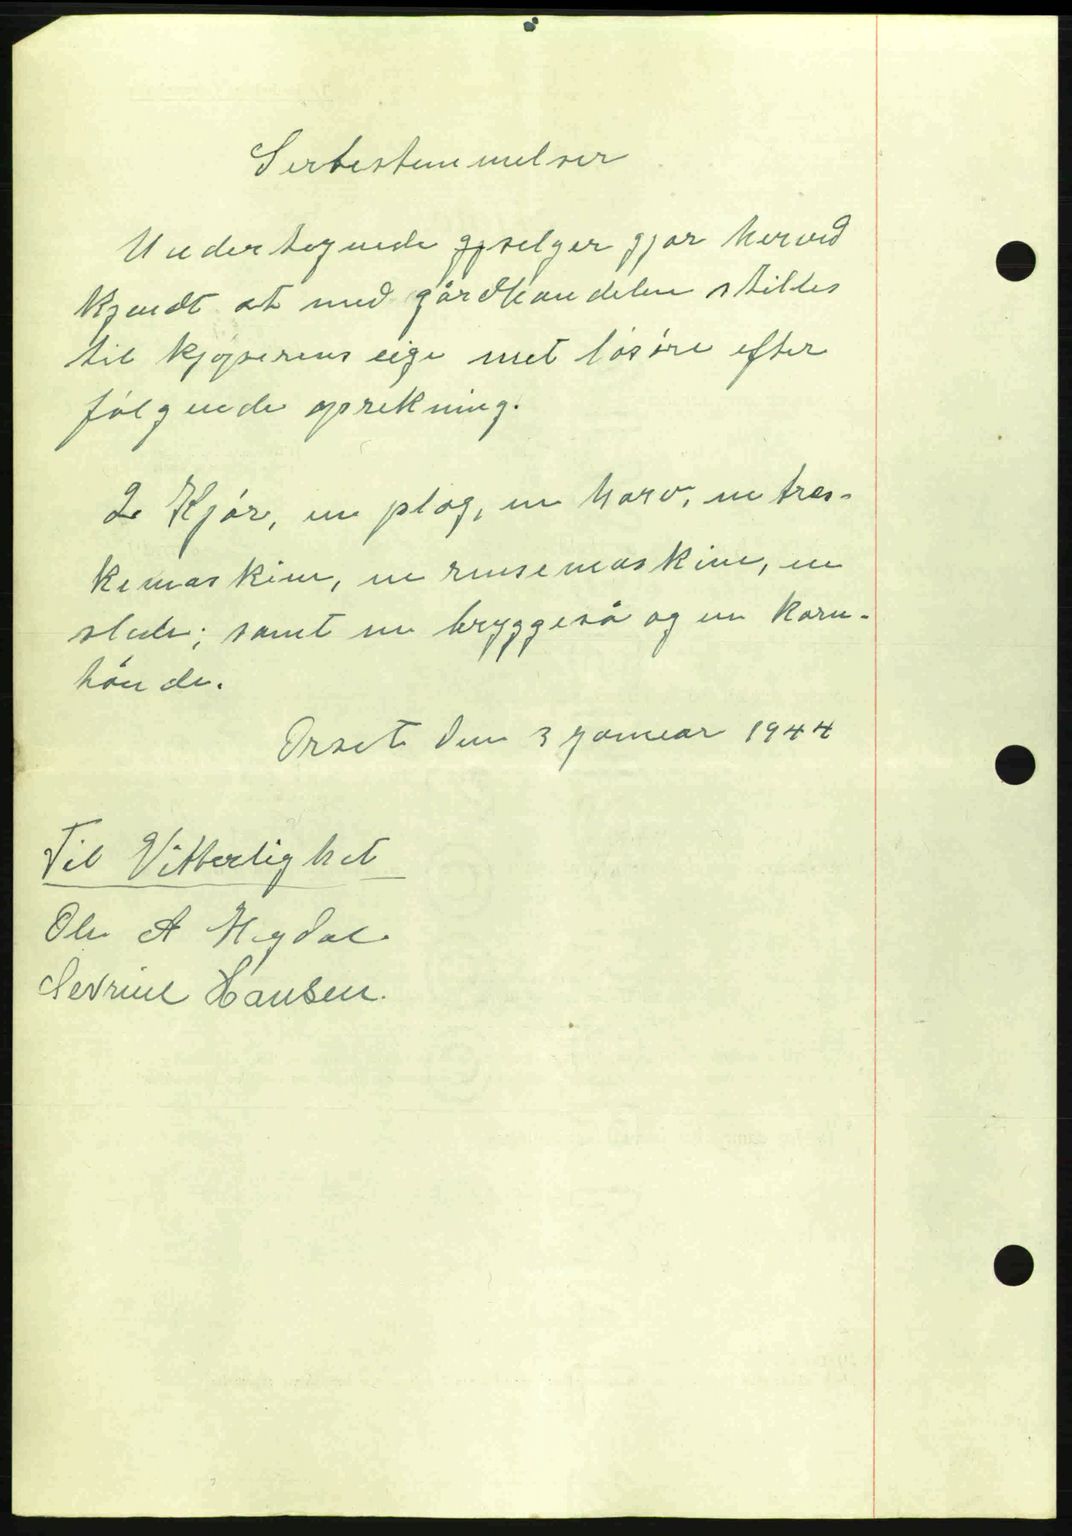 Serbestemmelser
Undertegnede selger gjør herved
kjendt at med gårdhandelen stilles
til kjøperens eige met løsøre efter
følgende oprekning.
2 Kjør, en plog, en harv, en tres-
kemaskine, en rensemaskine, en
slede; samt en bryggeså og en korn-
hånde.
Orset den 3 januar 1944
Til Vitterlighet
Ole A Hegdal
Sevrine Hansen.